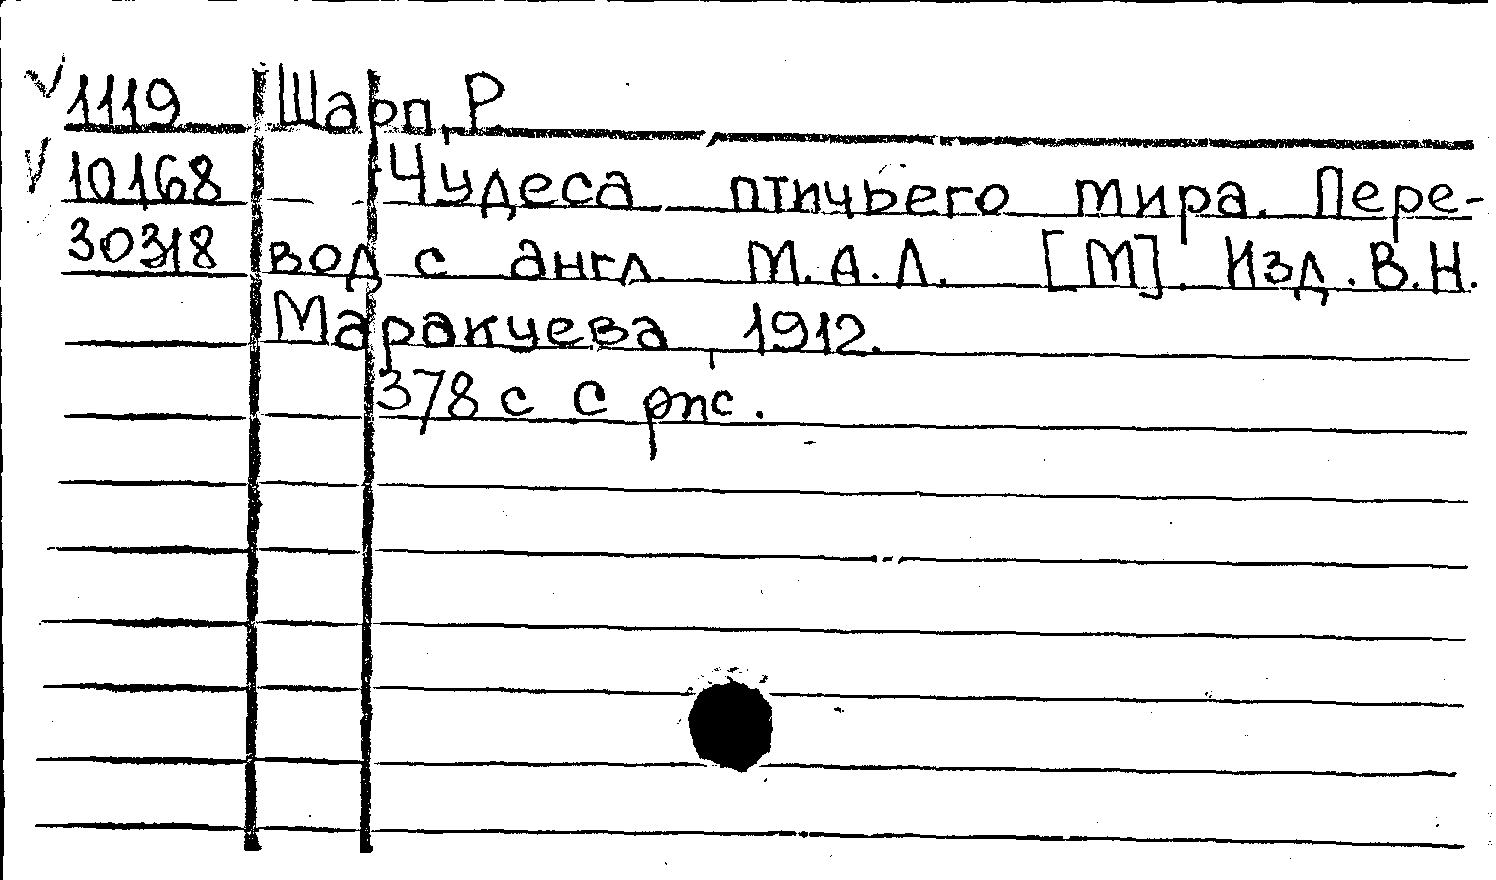 1119 Шарп, Р
10168 Чудеса птичьего мира. Пере-
30318 вод с англ. М.А.Л. [М]. Изд. В.Н.
Маракуева, 1912.
378 с с рис.